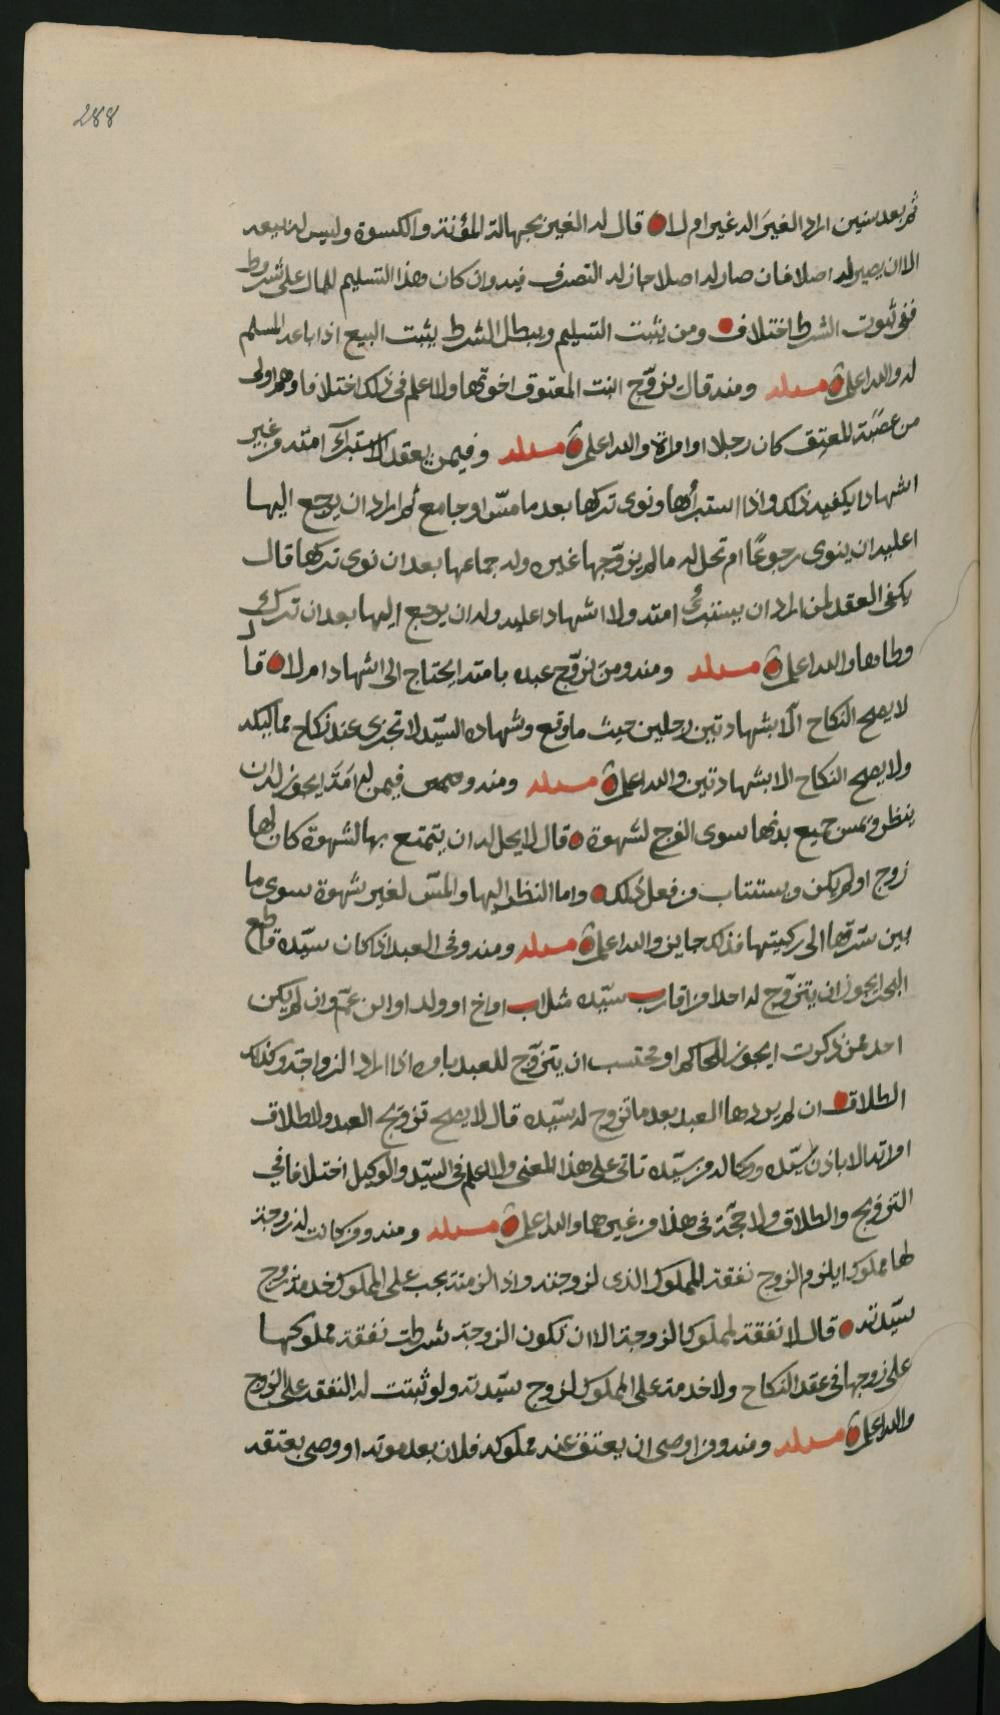 288
ثم بعد سنين اراد الغيَر اله غير ام لا قال له الغير بجهالة المؤنة والكسوة وليس له بيعه
الا ان يصير له اصلا فان صار له اصلا جاز له التصرف فيه وان كان هذا التسليم للمال على شروط
ففي ثبوت الشرط اختلاف ومن يثبت التسليم ويبطل الشرط يثبت البيع اذا باعه المسلم
له والله اعلم مسئلة ومنه قال تزوّج البنت المعتوق اخوتها ولا اعلم في ذلك اختلافا وهم اولى
من عصبة المعتق كان رجلا او امراة والله اعلم مسئلة وفيمن يعقد الاستبراء امته من غير
اشهاد ايكفيه ذلك واذا استبرأها ونوى تركها بعد ما مسّ او جامع ثم اراد ان يرجع اليها
اعليه ان ينوى رجوعًا ام تحل له ما لم يزوّجها غيره وله جماعها بعد ان نوى تركها قال
يكفي العقد لمن اراد ان يستبرئ امته ولا اشهاد عليه وله ان يرجع اليها بعد ان ترك
وطاءها والله اعلم مسئلة ومنه ومن زوّج عبده بامته ايحتاج الى اشهاد ام لا قال
لا يصح النكاح الّا بشهادتين رجلين حيث ما وقع وشهادة السيّد لا تجزى عند نكاح مماليكه
ولا يصح النكاح الا بشهادتين والله اعلم مسئلة ومنه وفيمن له امَة ايجوز له ان
ينظر ويمس جميع بدنها سوى الفرج لشهوة قال لا يحل له ان يتمتع بها لشهوة كان لها
زوج او لم يكن ويستتاب من فعل ذلك واما النظر اليها والمسّ لغير شهوة سوى ما
بين سرّتها الى ركبتها فذلك جايز والله اعلم مسئلة ومنه وفي العبد اذا كان سيّده قاطع
البحر ايجوز ان يتزوّج له احد من اقارب سيّده مثل اب او اخ او ولد او ابن عمّ وان لم يكن
احد ممن ذكرت ايجوز للحاكم او محتسب ان يتزوّج للعبد بامره اذا اراد الزواجة وكذلك
الطلاق ان لم يردها العبد بعد ما تزوج له سيّده قال لا يصح تزويج العبد ولا طلاق
امراته الا باذن سيّده ووكالة من سيّده تاتى على هذا المعنى والله اعلم في السيّد والوكيل اختلافا في
التزويج والطلاق ولا حجّة في هذا من غيرهما والله اعلم مسئلة ومنه ومن كانت له زوجة
لها مملوك ايلزم الزوج نفقة المملوك الذى لزوجته واذا لزمته يجب على المملوك خدمة زوج
سيّدته قال لا نفقة لمملوك الزوجة الا ان تكون الزوجة شرطت نفقة مملوكها
على زوجها في عقد النكاح ولا خدمة على المملوك لزوج سيّدته ولو ثبتت له النفقة على الزوج
والله اعلم مسئلة ومنه ومن اوصى ان يعتق عنه مملوكه فلان بعد موته او وصى بعتقه